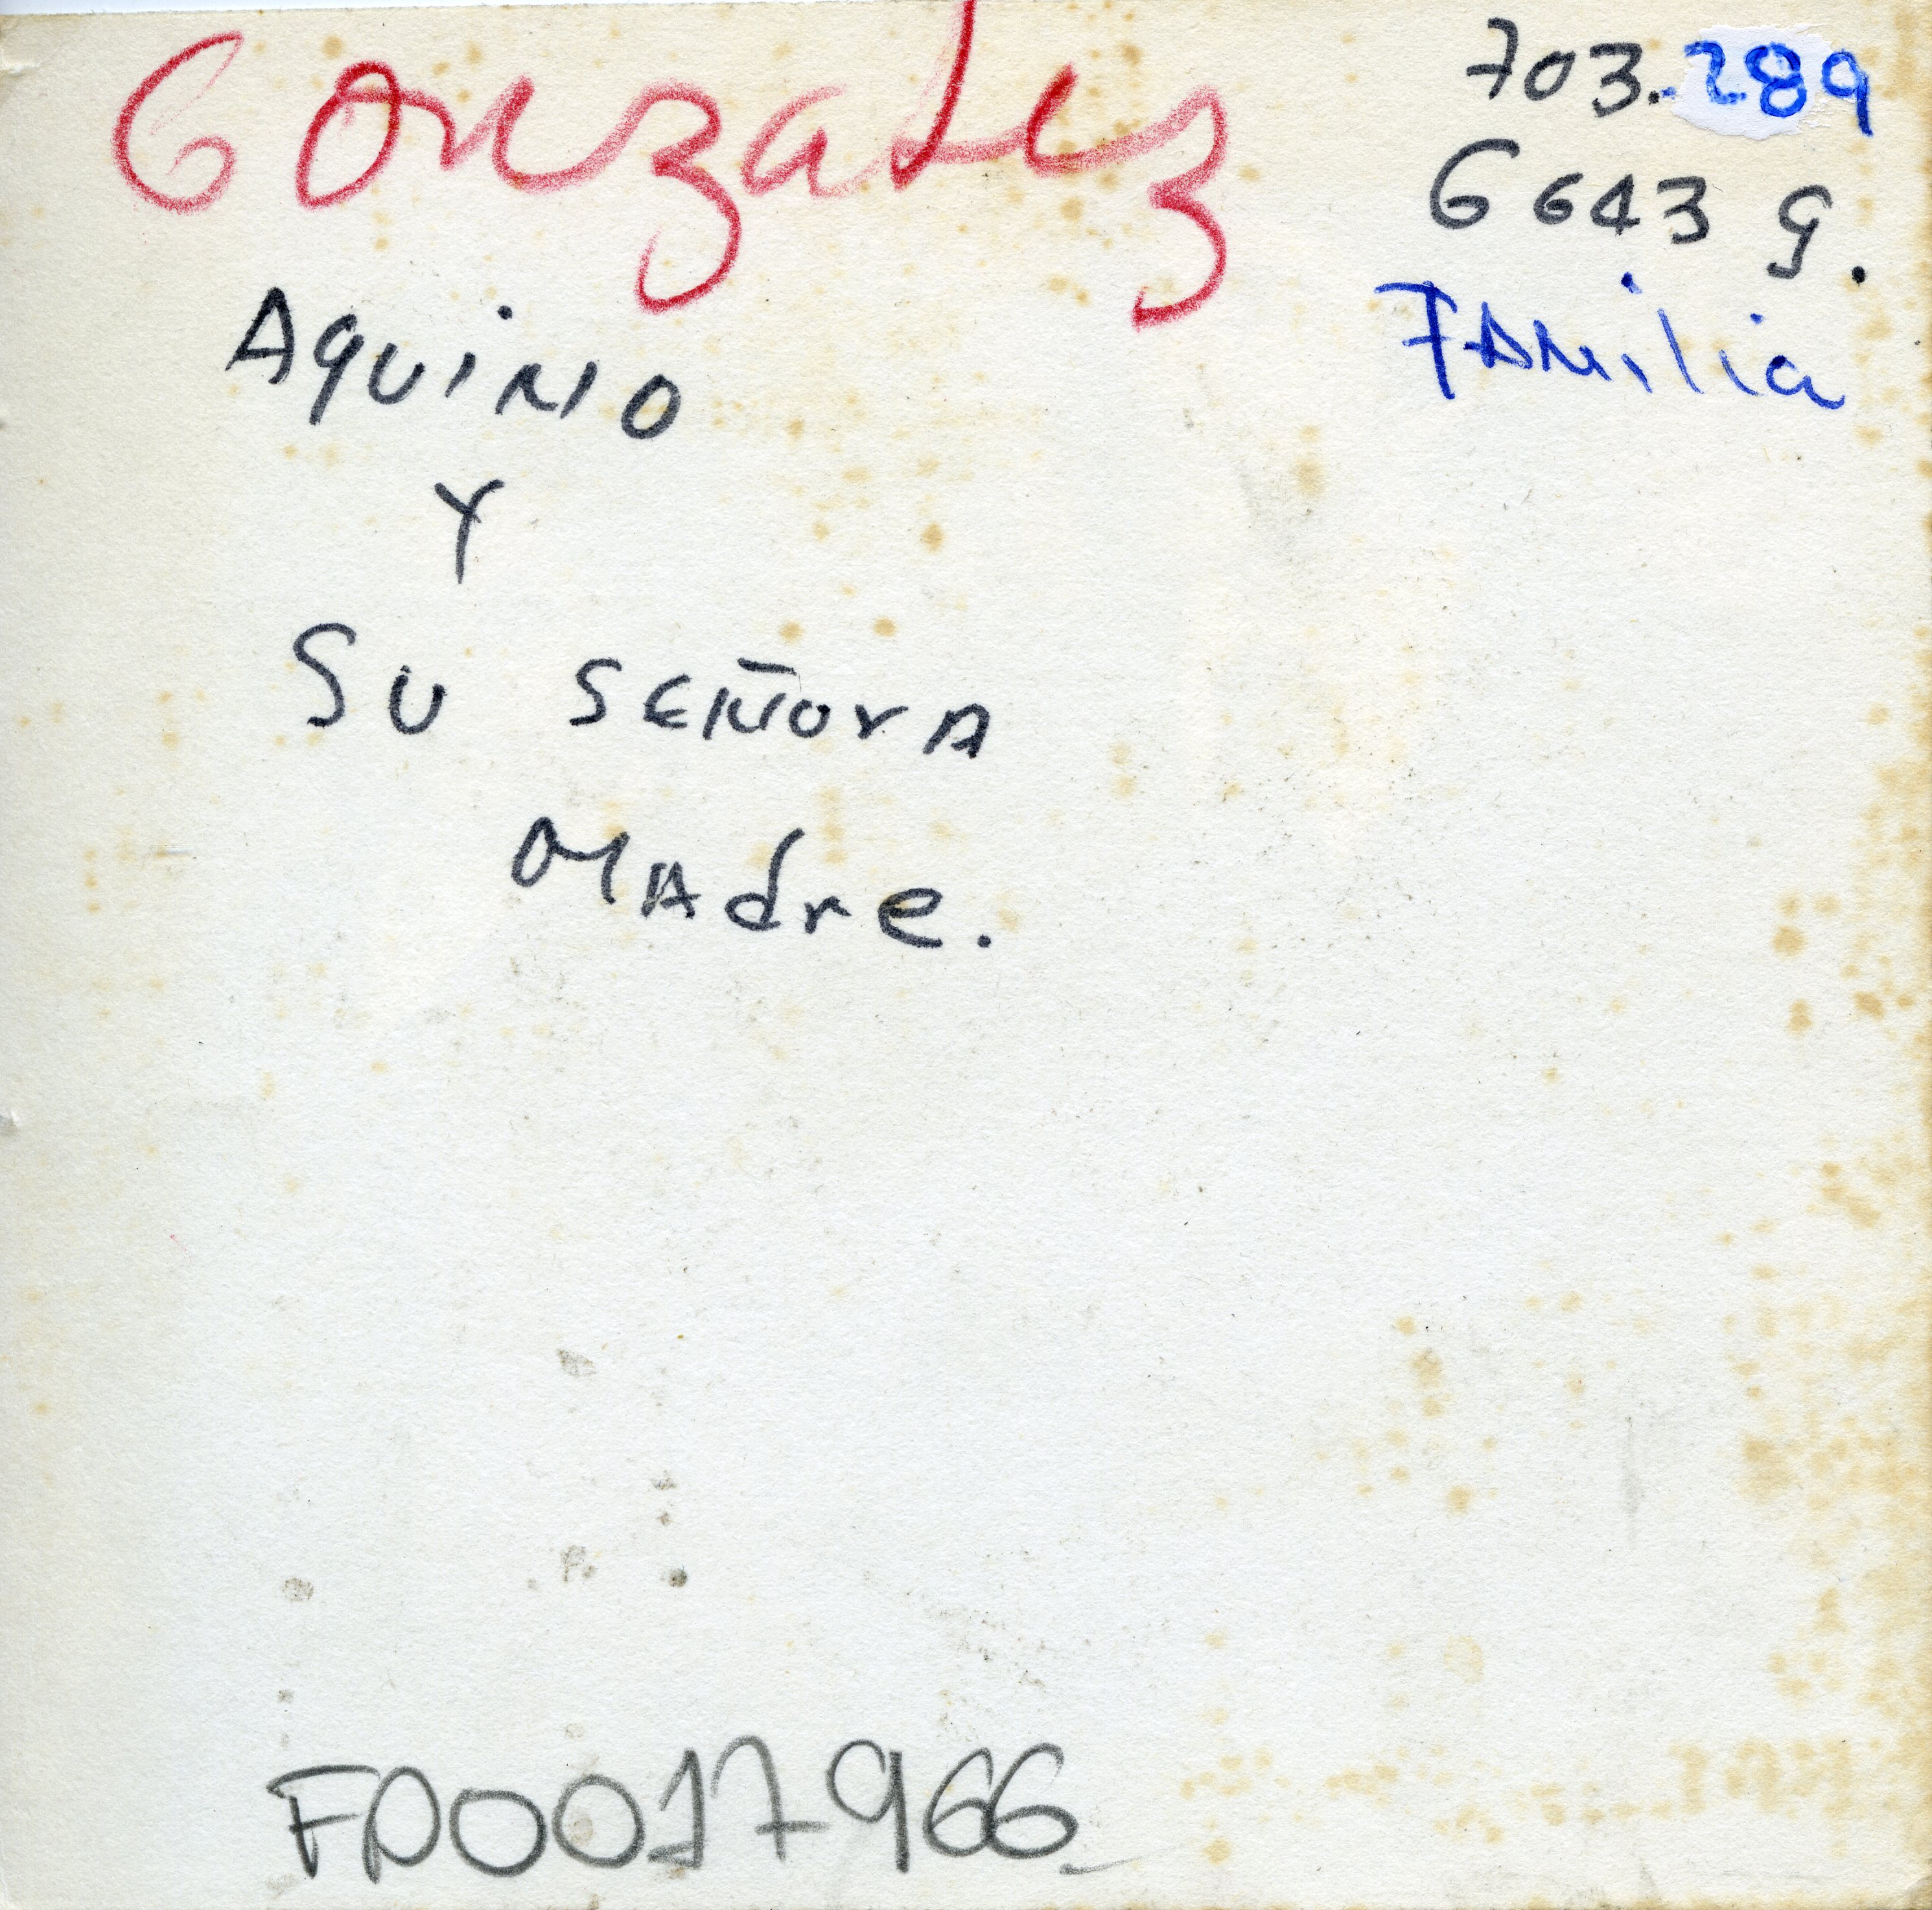 Gonzalez
703.289
6643 G.
Familia
Aquino
Y
Su Señora
Madre.
FA0017966